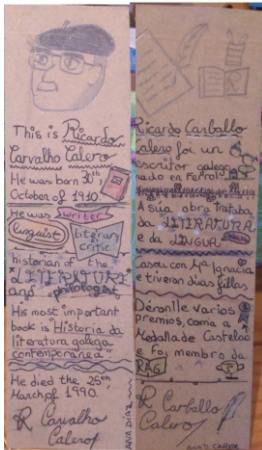 This is Ricardo
Carvalho Calero
He was born 30th,
October of 1910.
He was writer
linguist
Literary
critic
historian of the
"LITERATURE"
and philologist.
His most important
book is "Historia da
literatura galega
contemporanea"
He died the 25th,
March of 1990.
R Carvalho
Calero
ANA DÍAZ
Ricardo Carballo
Calero foi un
escritor galego
nado en Ferrol
A súa obra trataba
da LITERATURA
e da LINGUA
Casou con Mª Ignacia
e tiveron dúas fillas
Déronlle varios
premios, coma a
Medalla de Castelao
e foi membro da
RAG
R Carballo
Calero